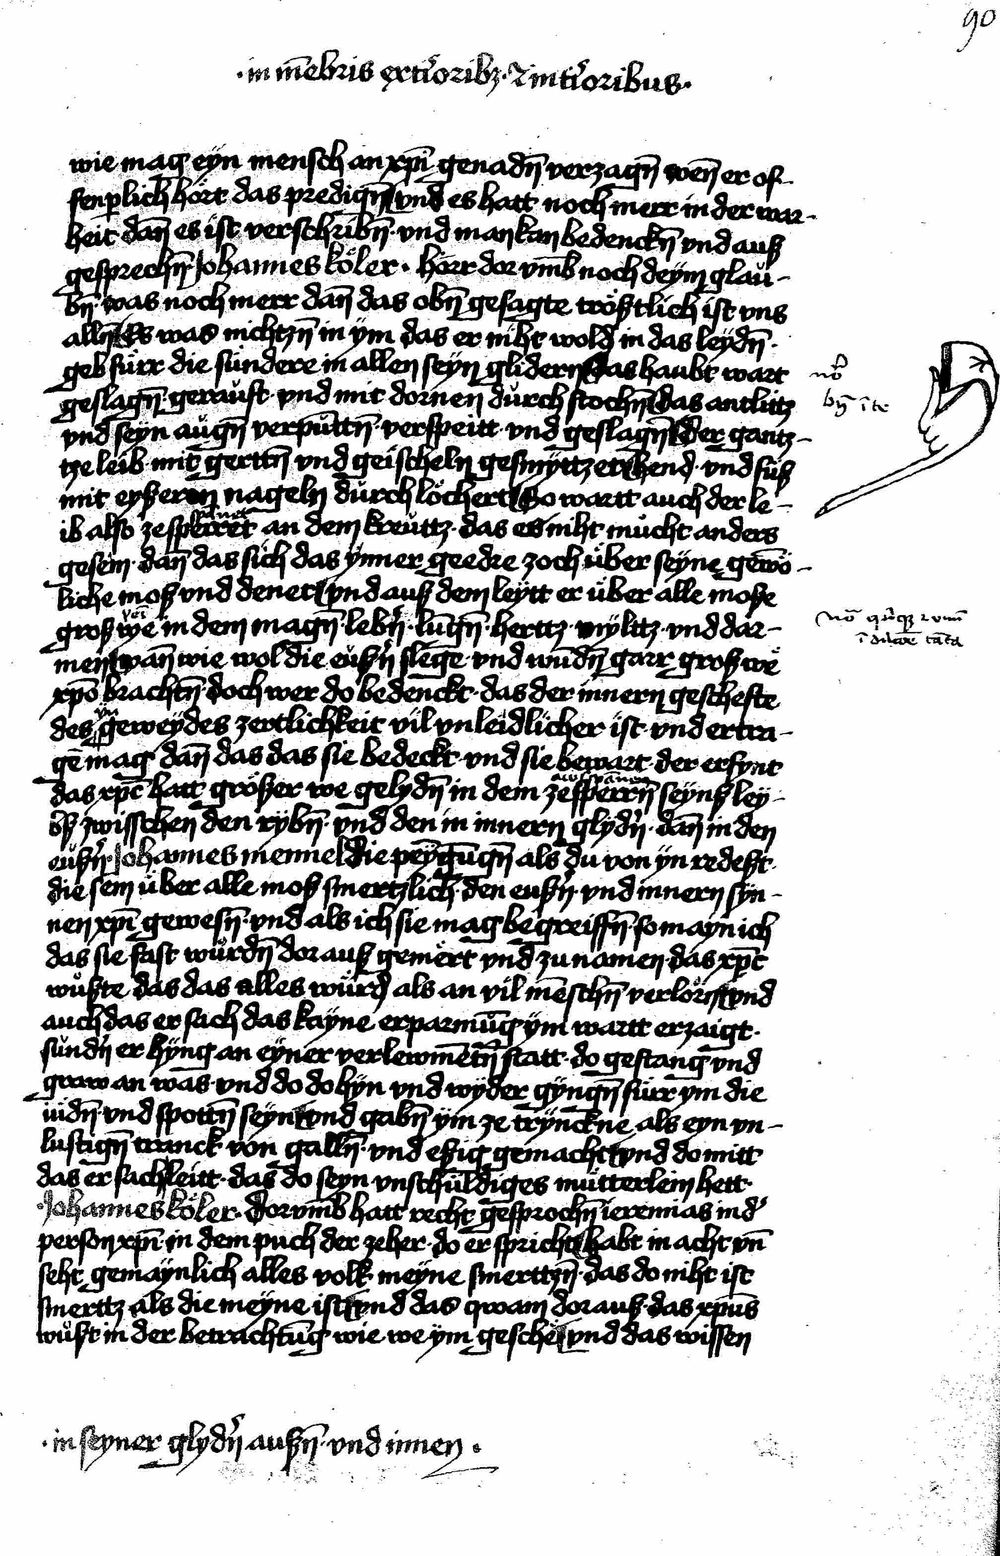 90
·in me̅bris exti᷑oribꝫ· ⁊ inti᷑oribus·
wie mag eyn mensch an xpi̅ genadn̅ verzagn̅ wen̅ er of-
fenp̱lich hört das predign̅ vnd es hatt noch merr in der war-
heit dan̅ es ist verschribn̅· vnd man kan bedenckn̅ vnd auß
gesprechn̅· Johannes köler· hörr dor vm̅b noch deym glau-
bn̅ was noch merr dan̅ das obn̅ gesagte tröstlich ist vns
alln̅ Es was nichtzn̅ in ym das er niht wold in das leydn̅·
geb fürr die sündere in allen seyn glidern das haubt wart
geslagn̅· gerauft· vnd mit dornen durch stochn̅ das antlitz
vnd seyn augn̅ verpuntn̅· verspeitt· vnd geslagn̅ der gantz-
tze leib mit gerttn̅ vnd geischeln gesmyttzet hend· vnd füß
mit eyßeren nageln durch löchert So wartt auch der le-
ib also zesperret an dem kreuttz· das es niht mücht anders
gesein· dan̅ das sich das ynner geedre zoch über seyne gewo̅-
liche moß vnd denet vnd auß dem leytt er über alle moße
groß we in dem magn̅· lebn᷑· lungn̅· herttz· mylttz· vnd dar-
men wan̅ wie wol die eusn᷑ slege· vnd wundn̅ garr groß we
xpo̅ brachtn̅· doch wer do bedenckt· das der innern geschefte
des yngeweydes zertlichkeit vil vnleidlicher ist· vnd ertra-
ge̅ mag dan̅ das das sie bedeckt· vnd sie bewart· der erfynt
das xpc̅ hatt größer we gelydn̅ in dem zesperrn̅ seynß ley-
bß zwisschen den rybn̅· vnd den in innern glydn᷑· dan̅ in den
eußn᷑· Johannes mennel die peyngūgn̅ als du von yn redest·
die sein über alle moß smertzlich· den eußn᷑· vnd innern syn-
nen xpi̅ gewesn̅· vnd als ich sie mag begreiffn̅· so mayn ich
das sie fast würdn̅ dorauß gemert vnd zu namen· das xpc̅
wüßte das das alles würd als an vil me̅schn̅ verlörn vnd
auch das er sach das kayne erparmūg ym wartt erzaigt·
sundn᷑ er hyng an eyner verlewme̅tn̅ statt· do gestang vnd
graw an was· vnd do do hyn vnd wyder gyngn̅ fürr ym die
iudn̅· vnd spottn̅ seyn vnd gabn̅ ym ze trynckne als eyn vn-
lustign̅ tranck von galln̅· vnd essig gemacht vnd do mitt
das er sach leitt· das do seyn vnschuldiges mütterlein hett·
·Johannes köler· dor vm̅b hatt recht gesprochn̅ ieremias in d᷑
person xpi̅· in dem puch der zeher· do er spricht habt in acht vn̅
seht gemaynlich alles volk· meyne smerttzn̅· das do niht ist
smerttz als die meyne ist vnd das qwam dorauß· das xpus̅
wüst in der betrachtūg wie we ym gesche vnd das wissen
·in seyner glydn᷑ außn̅· vnd innen·